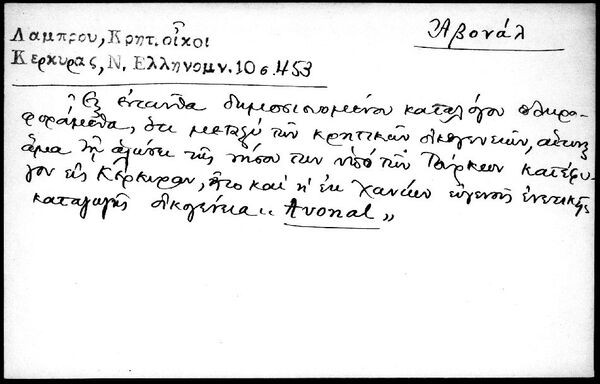 Λαμπρου, Κρητ. οἶκοι
Ἀβονάλ
Κερκυρας, Ν. Ελληνομν. 10 σ. 453
Ἐξ ἐνταῦθα δημοσιευομένου καταλόγου πληρο-
φορούμεθα, ὅτι μεταξὺ τῶν κρητικῶν οἰκογενειῶν, αἵτινες
ἅμα τῇ ἁλώσει τῆς νήσου των ὑπὸ τῶν Τούρκων κατέφυ-
γον εἰς Κέρκυραν, ἦτο καὶ ἡ ἐκ Χανίων εὐγενοῦς ἐνετικῆς
καταγωγῆς οἰκογένεια " Avonal "